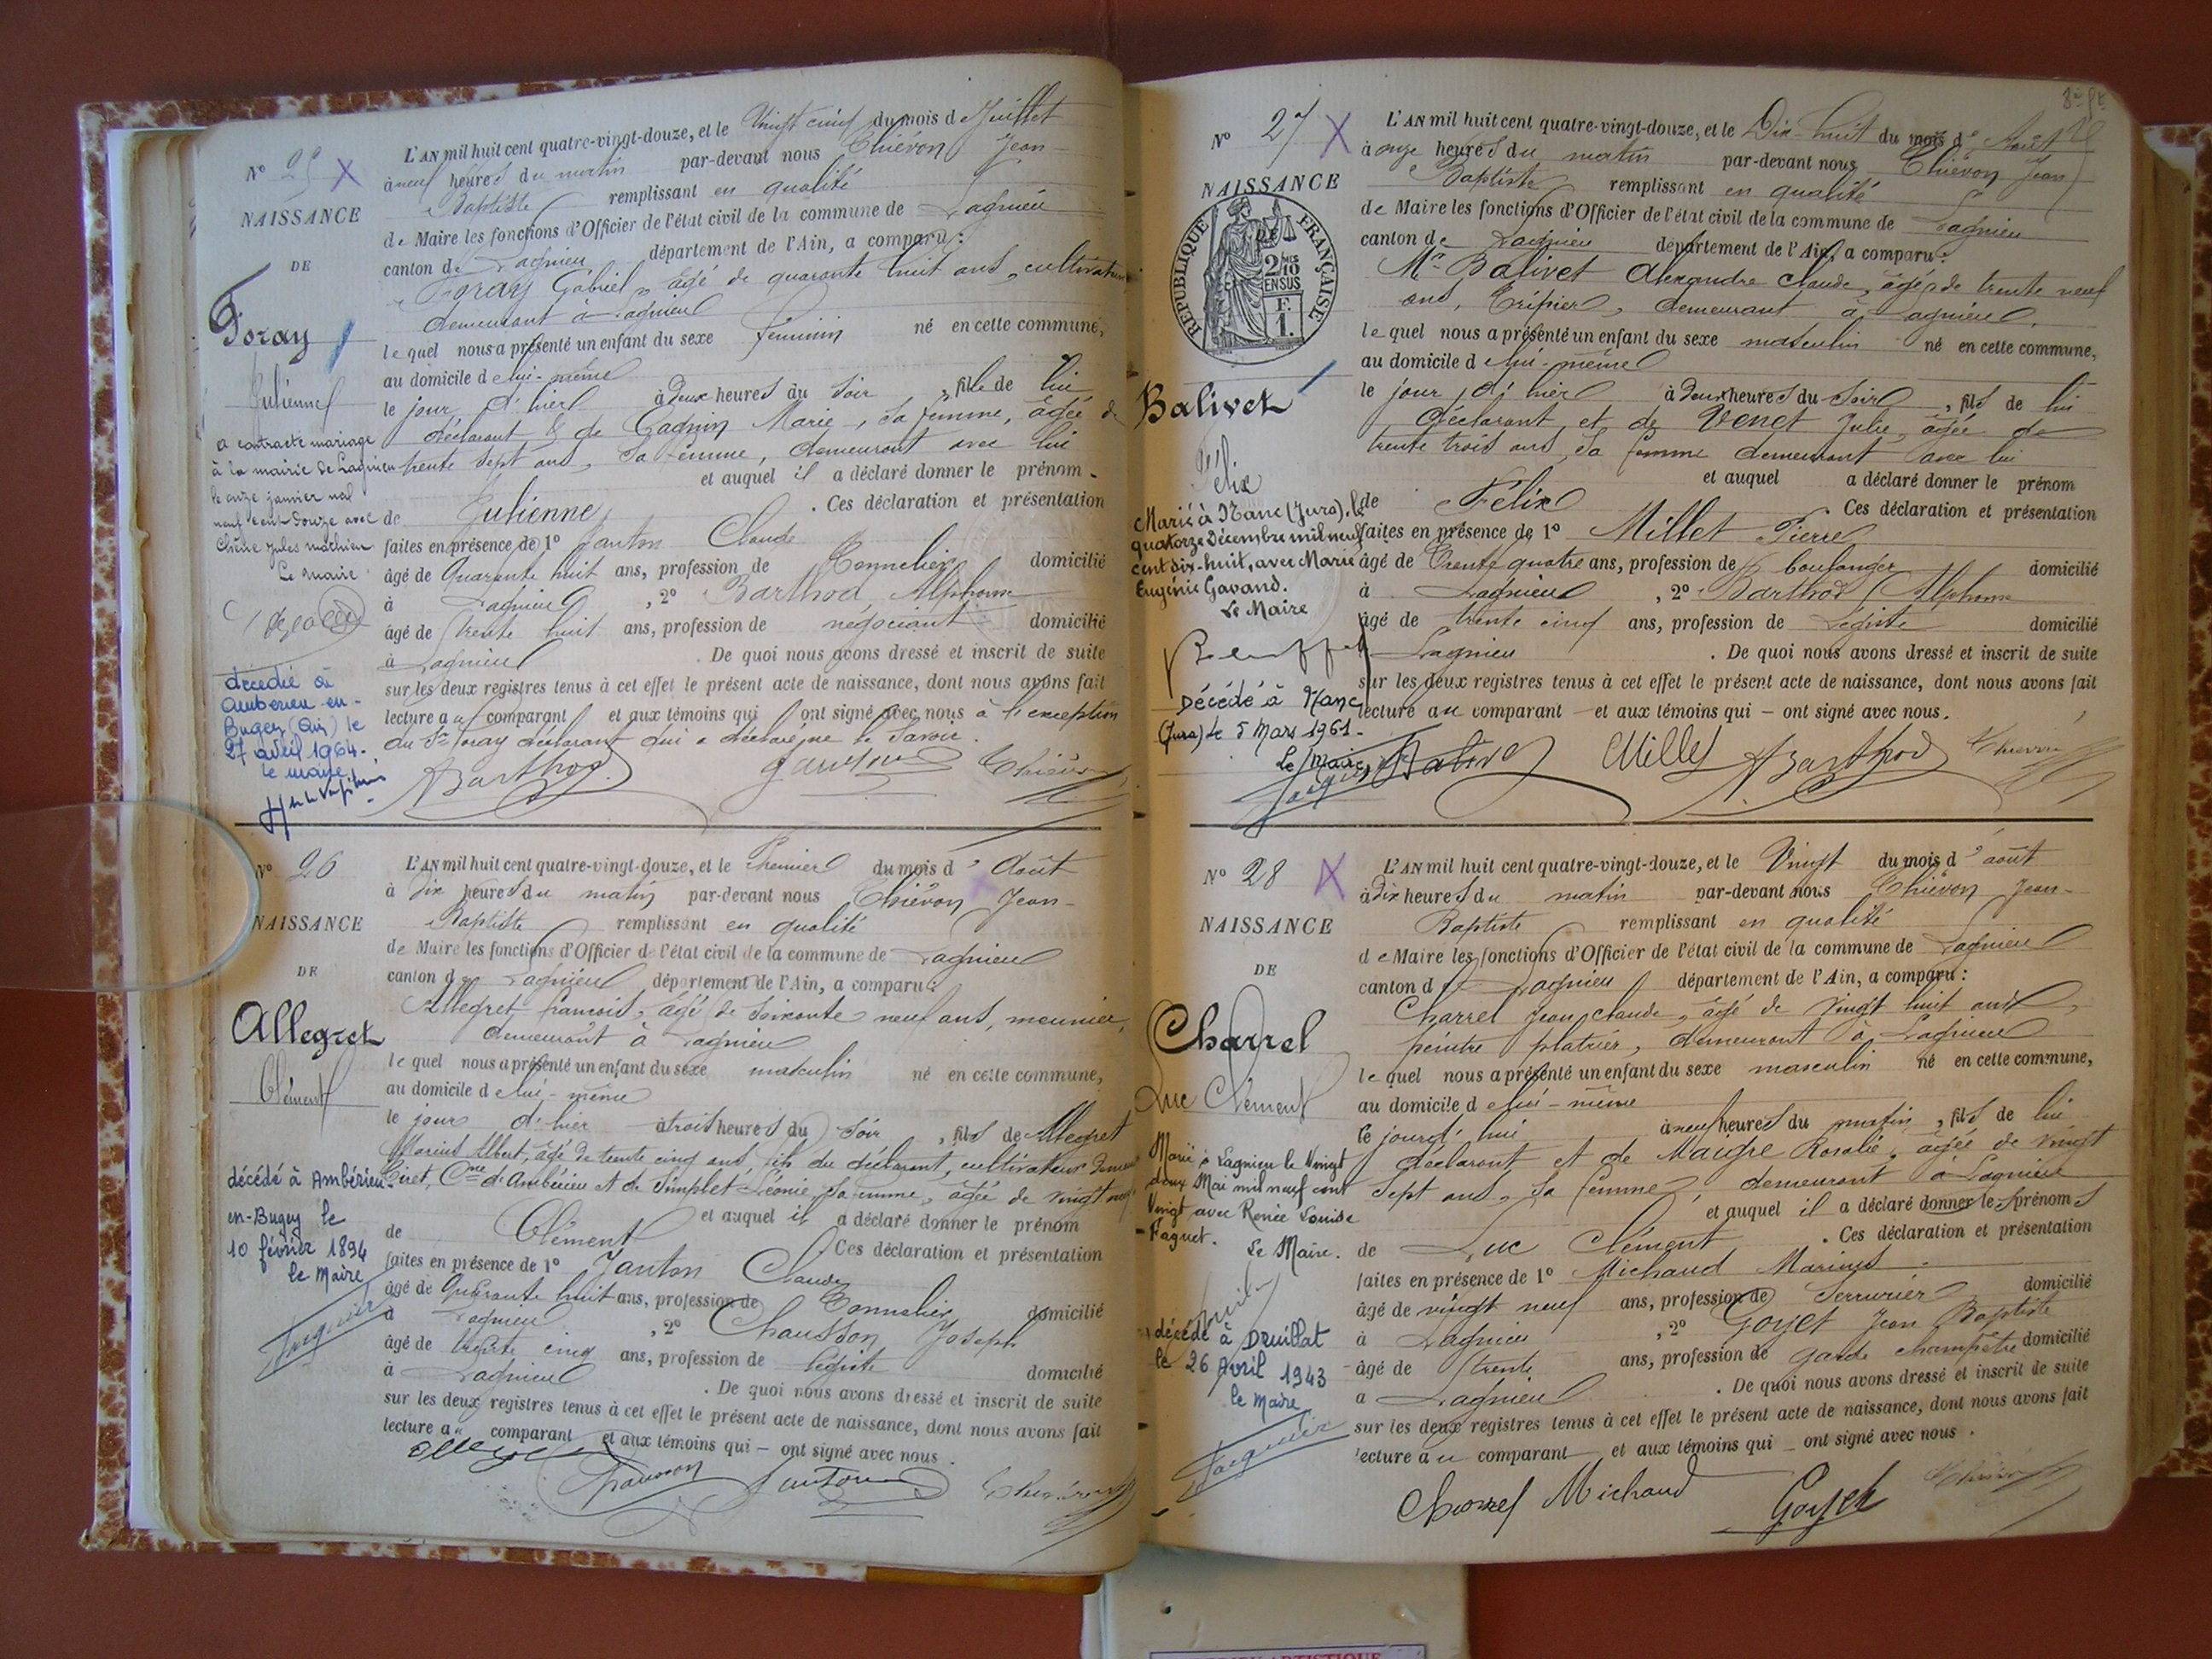 N° 25 X
NAISSANCE
DE
Foray
Julienne
a contracté mariage
à la mairie de Lagnieu
le onze janvier mil
neuf cent douze avec
Chêne Jules Mathieu
Le Maire
décédée à
Ambérieu-en-
Bugey (Ain) le
27 avril 1964.
le maire
L'AN mil huit cent quatre-vingt-douze, et le Vingt cinq du mois d e Juillet
à neuf heures du matin par-devant nous Chiévon Jean-
Baptiste remplissant en qualité
de Maire les fonctions d'Officier de l'état civil de la commune de Lagnieu
canton de Lagnieu département de l'Ain, a comparu :
Foray Gabriel, âgé de quarante huit ans, cultivateur
demeurant à Lagnieu
lequel nous a présenté un enfant du sexe féminin né en cette commune,
au domicile de lui-même
le jour d'hier à deux heures du soir, fille de lui
déclarant & de Gagnin Marie, sa femme, âgée de
trente sept ans, sa femme, demeurant avec lui
et auquel il a déclaré donner le prénom
de Julienne. Ces déclaration et présentation
faites en présence de 1° Janton Claude
âgé de Quarante huit ans, profession de Tonnelier domicilié
à Lagnieu, 2° Barthod Alphonse
âgé de trente huit ans, profession de négociant domicilié
à Lagnieu. De quoi nous avons dressé et inscrit de suite
sur les deux registres tenus à cet effet le présent acte de naissance, dont nous avons fait
lecture au comparant et aux témoins qui ont signé avec nous à l'exception
du Sr Foray déclarant qui a déclaré ne le savoir.
ABarthod Janton Chiévon
N° 26
NAISSANCE
DE
Allegret
Clément
décédé à Ambérieu-
en-Bugey le
10 février 1894
le Maire
Jacquier
L'AN mil huit cent quatre-vingt-douze, et le Premier du mois d'Août
à dix heures du matin par-devant nous Chiévon Jean-
Baptiste remplissant en qualité
de Maire les fonctions d'Officier de l'état civil de la commune de Lagnieu
canton de Lagnieu département de l'Ain, a comparu :
Allegret françois, âgé de soixante neuf ans, meunier,
demeurant à Lagnieu
lequel nous a présenté un enfant du sexe masculin né en cette commune,
au domicile de lui-même
le jour d'hier à trois heures du soir, fils de Allegret
Marius Albert, âgé de trente cinq ans, fils du déclarant, cultivateur
Tiret, Cne d'Ambérieu et de Simplet Léonie, sa femme, âgée de vingt neuf
et auquel il a déclaré donner le prénom
de Clément Ces déclaration et présentation
faites en présence de 1° Janton Claude
âgé de Quarante huit ans, profession de Tonnelier domicilié
à Lagnieu, 2° Chausson Joseph
âgé de trente cinq ans, profession de Légiste domicilié
à Lagnieu. De quoi nous avons dressé et inscrit de suite
sur les deux registres tenus à cet effet le présent acte de naissance, dont nous avons fait
lecture au comparant et aux témoins qui – ont signé avec nous.
Chausson Janton Chiévon
N° 27 X
NAISSANCE
RÉPUBLIQUE FRANÇAISE
2/10 EN SUS
F.
1.
Balivet
Félix
Marié à Nanc (Jura), le
quatorze Décembre mil neuf
cent dix-huit, avec Marie
Eugénie Gavand.
Le Maire
Décédé à Nanc
(Jura) le 5 Mars 1961.
Le Maire,
Jacquier
L'AN mil huit cent quatre-vingt-douze, et le Dix-huit du mois d'Août
à onze heures du matin par-devant nous Chiévon Jean
Baptiste remplissant en qualité
de Maire les fonctions d'Officier de l'état civil de la commune de Lagnieu
canton de Lagnieu département de l'Ain, a comparu :
Mr Balivet Alexandre Claude, âgé de trente neuf
ans, Tripier, demeurant à Lagnieu,
lequel nous a présenté un enfant du sexe masculin né en cette commune,
au domicile de lui-même
le jour d'hier à deux heures du soir, fils de lui
déclarant et de Venet Julie, âgée de
trente trois ans, sa femme demeurant avec lui
et auquel a déclaré donner le prénom
de Félix Ces déclaration et présentation
faites en présence de 1° Millet Pierre
âgé de Trente quatre ans, profession de boulanger domicilié
à Lagnieu, 2° Barthod Alphonse
âgé de trente cinq ans, profession de Légiste domicilié
Lagnieu. De quoi nous avons dressé et inscrit de suite
sur les deux registres tenus à cet effet le présent acte de naissance, dont nous avons fait
lecture au comparant – et aux témoins qui – ont signé avec nous.
Balivet Millet ABarthod Chiévon
N° 28 X
NAISSANCE
DE
Charrel
Luc Clément
Marié à Lagnieu le Vingt
deux Mai mil neuf cent
Vingt avec Renée Louise
Faguet.
Le Maire.
décédé à Druillat
le 26 Avril 1943
le Maire
Jacquier
L'AN mil huit cent quatre-vingt-douze, et le Vingt du mois d'août
à dix heures du matin par-devant nous Chiévon Jean-
Baptiste remplissant en qualité
de Maire les fonctions d'Officier de l'état civil de la commune de Lagnieu
canton de Lagnieu département de l'Ain, a comparu :
Charrel Jean Claude, âgé de vingt huit ans,
peintre plâtrier, demeurant à Lagnieu
lequel nous a présenté un enfant du sexe masculin né en cette commune,
au domicile de lui-même
le jourd'hui à neuf heures du matin, fils de lui
déclarant et de Maigre Rosalie, âgée de vingt
sept ans, sa femme, demeurant à Lagnieu
et auquel il a déclaré donner les prénoms
de Luc Clément. Ces déclaration et présentation
faites en présence de 1° Michaud Marius
âgé de vingt neuf ans, profession de Serrurier domicilié
à Lagnieu, 2° Goyet Jean Baptiste
âgé de trente ans, profession de garde champêtre domicilié
à Lagnieu. De quoi nous avons dressé et inscrit de suite
sur les deux registres tenus à cet effet le présent acte de naissance, dont nous avons fait
lecture au comparant et aux témoins qui – ont signé avec nous.
Charrel Michaud Goyet Chiévon